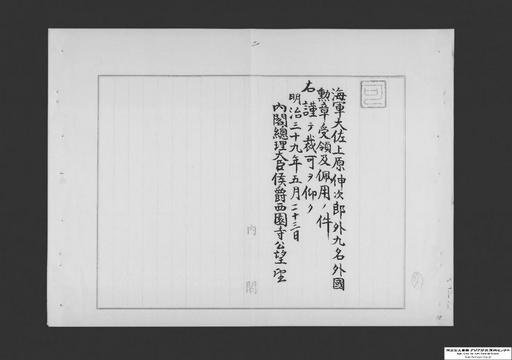 二
可
海軍大佐上原伸次郎外九名外國
勲章受領及佩用ノ件
右謹テ裁可ヲ仰ク
明治三十九年五月二十三日
内閣總理大臣侯爵西園寺公望
内閣